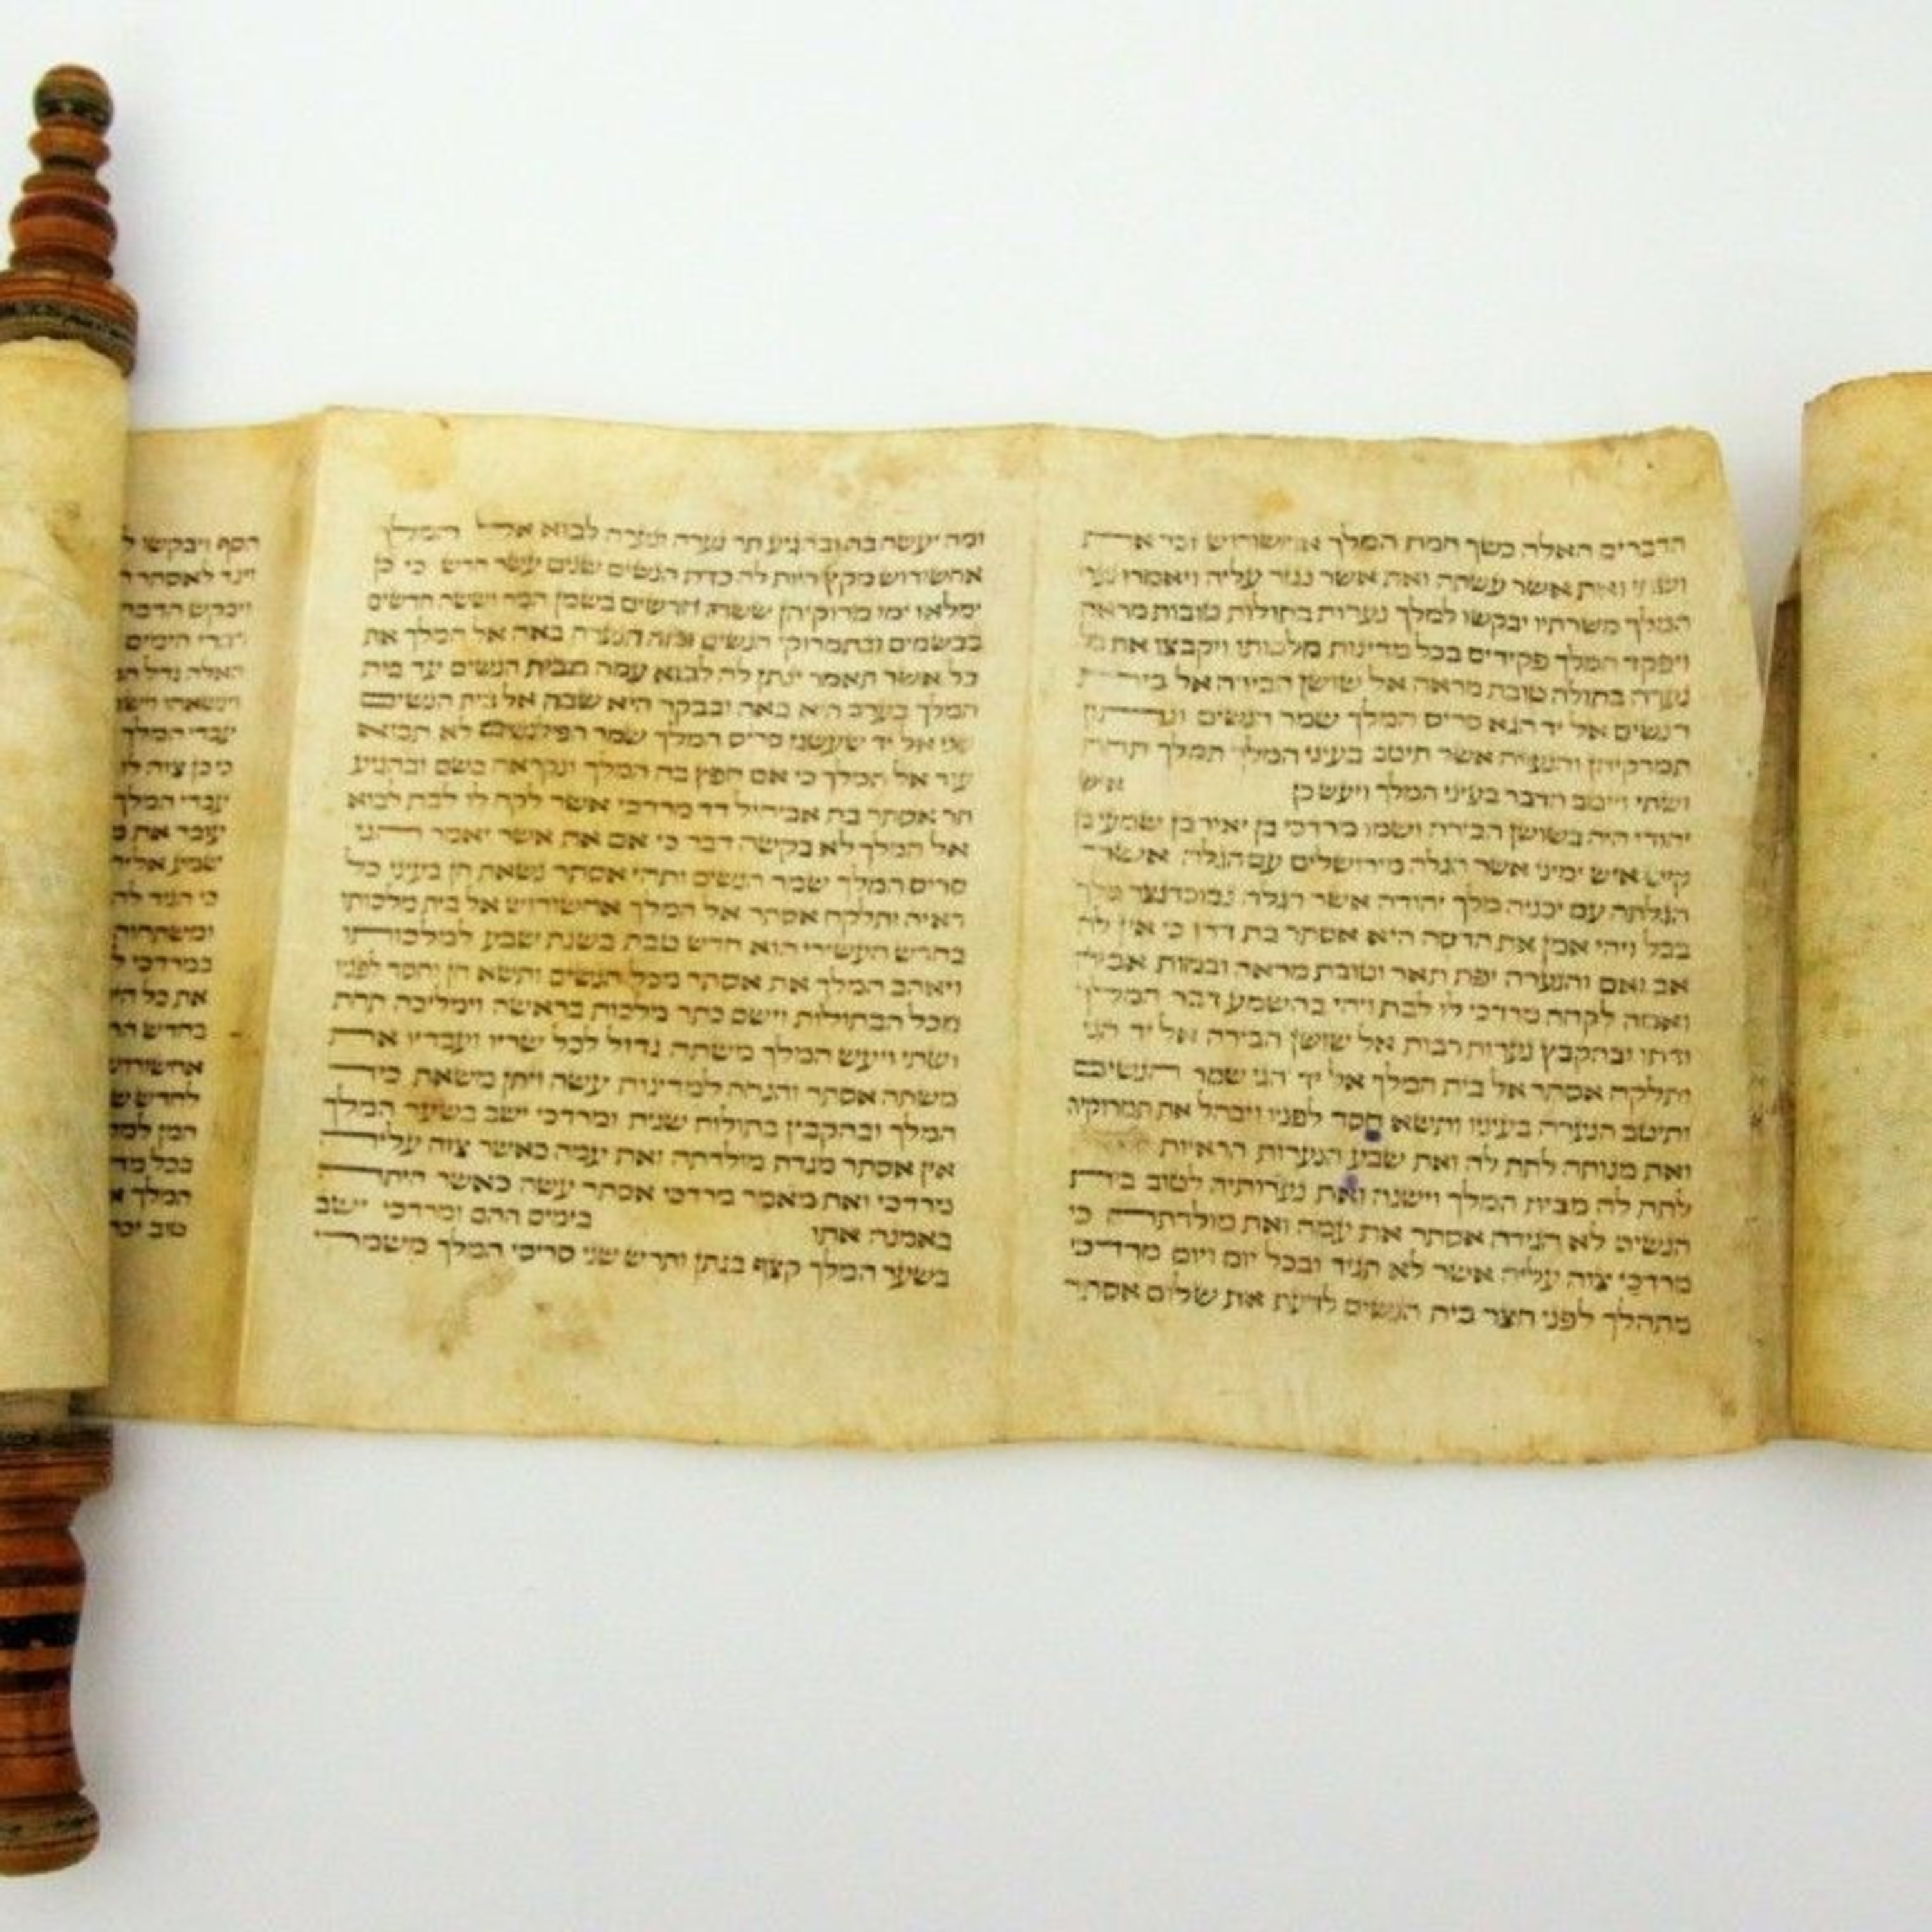 הדברים האלה כשך חמת המלך אחשורוש זכר את
ושתי ואת אשר עשתה ואת אשר נגזר עליה ויאמרו נערי
המלך משרתיו יבקשו למלך נערות בתולות טובות מראה
ויפקד המלך פקידים בכל מדינות מלכותו ויקבצו את כל
נערה בתולה טובת מראה אל שושן הבירה אל בית
הנשים אל יד הגא סריס המלך שמר הנשים ונתון
תמרקיהן והנערה אשר תיטב בעיני המלך תמלך תחת
ושתי וייטב הדבר בעיני המלך ויעש כן איש
יהודי היה בשושן הבירה ושמו מרדכי בן יאיר בן שמעי בן
קיש איש ימיני אשר הגלה מירושלים עם הגלה אשר
הגלתה עם יכניה מלך יהודה אשר הגלה נבוכדנצר מלך
בבל ויהי אמן את הדסה היא אסתר בת דדו כי אין לה
אב ואם והנערה יפת תאר וטובת מראה ובמות אביה
ואמה לקחה מרדכי לו לבת ויהי בהשמע דבר המלך
ודתו ובהקבץ נערות רבות אל שושן הבירה אל יד הגי
ותלקח אסתר אל בית המלך אל יד הגי שמר הנשים
ותיטב הנערה בעיניו ותשא חסד לפניו ויבהל את תמרוקיה
ואת מנותה לתת לה ואת שבע הנערות הראיות
לתת לה מבית המלך וישנה ואת נערותיה לטוב בית
הנשים לא הגידה אסתר את עמה ואת מולדתה כי
מרדכי צוה עליה אשר לא תגיד ובכל יום ויום מרדכי
מתהלך לפני חצר בית הנשים לדעת את שלום אסתר
ומה יעשה בה ובהגיע תר נערה ונערה לבוא אל המלך
אחשורוש מקץ היות לה כדת הנשים שנים עשר חדש כי כן
ימלאו ימי מרוקיהן ששה חדשים בשמן המר וששה חדשים
בבשמים ובתמרוקי הנשים ובזה הנערה באה אל המלך את
כל אשר תאמר ינתן לה לבוא עמה מבית הנשים עד בית
המלך בערב היא באה ובבקר היא שבה אל בית הנשים
שני אל יד שעשגז סריס המלך שמר הפילגשים לא תבוא
עוד אל המלך כי אם חפץ בה המלך ונקראה בשם ובהגיע
תר אסתר בת אביחיל דד מרדכי אשר לקח לו לבת לבוא
אל המלך לא בקשה דבר כי אם את אשר יאמר הגי
סריס המלך שמר הנשים ותהי אסתר נשאת חן בעיני כל
ראיה ותלקח אסתר אל המלך אחשורוש אל בית מלכותו
בחדש העשירי הוא חדש טבת בשנת שבע למלכותו
ויאהב המלך את אסתר מכל הנשים ותשא חן וחסד לפניו
מכל הבתולות וישם כתר מלכות בראשה וימליכה תחת
ושתי ויעש המלך משתה גדול לכל שריו ועבדיו את
משתה אסתר והנחה למדינות עשה ויתן משאת כיד
המלך ובהקבץ בתולות שנית ומרדכי ישב בשער המלך
אין אסתר מגדת מולדתה ואת עמה כאשר צוה עליה
מרדכי ואת מאמר מרדכי אסתר עשה כאשר היתה
באמנה אתו בימים ההם ומרדכי ישב
בשער המלך קצף בגתן ותרש שני סריסי המלך משמרי
הסף ויבקשו ל
ויגד לאסתר ה
ויבקש הדבר
דברי הימים
האלה גדל המ
וינשאהו וישם
עבדי המלך
כי כן צוה לו
עבדי המלך
עובר את מ
שמע אליה
כי הגיד לה
ומשתחוה
במרדכי ל
את כל הי
בחדש הר
אחשורוש
לחדש ש
המן למל
בכל מד
המלך א
טוב יכת